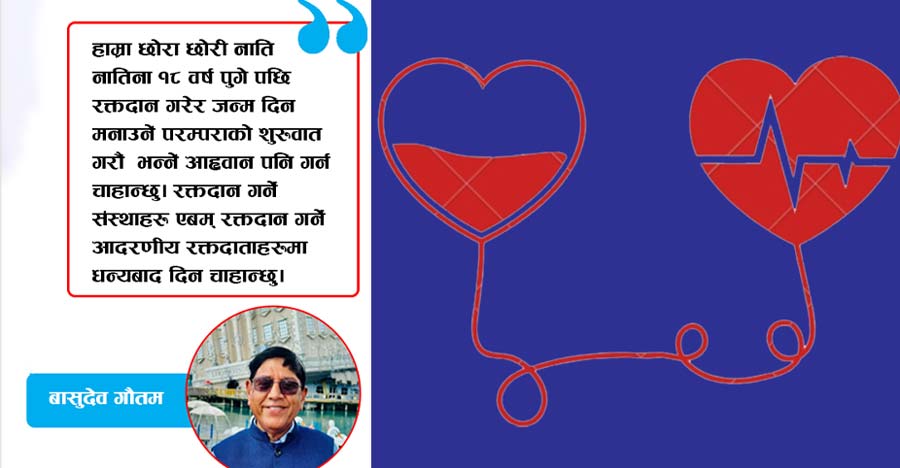 हाम्रा छोरा छोरी नाति
नातिना १८ वर्ष पुगे पछि
रक्तदान गरेर जन्म दिन
मनाउने परम्पराको शुरुवात
गरौं भन्ने आह्वान पनि गर्न
चाहान्छु। रक्तदान गर्ने
संस्थाहरु एबम् रक्तदान गर्ने
आदरणीय रक्तदाताहरुमा
धन्यबाद दिन चाहान्छु।
बासुदेव गौतम